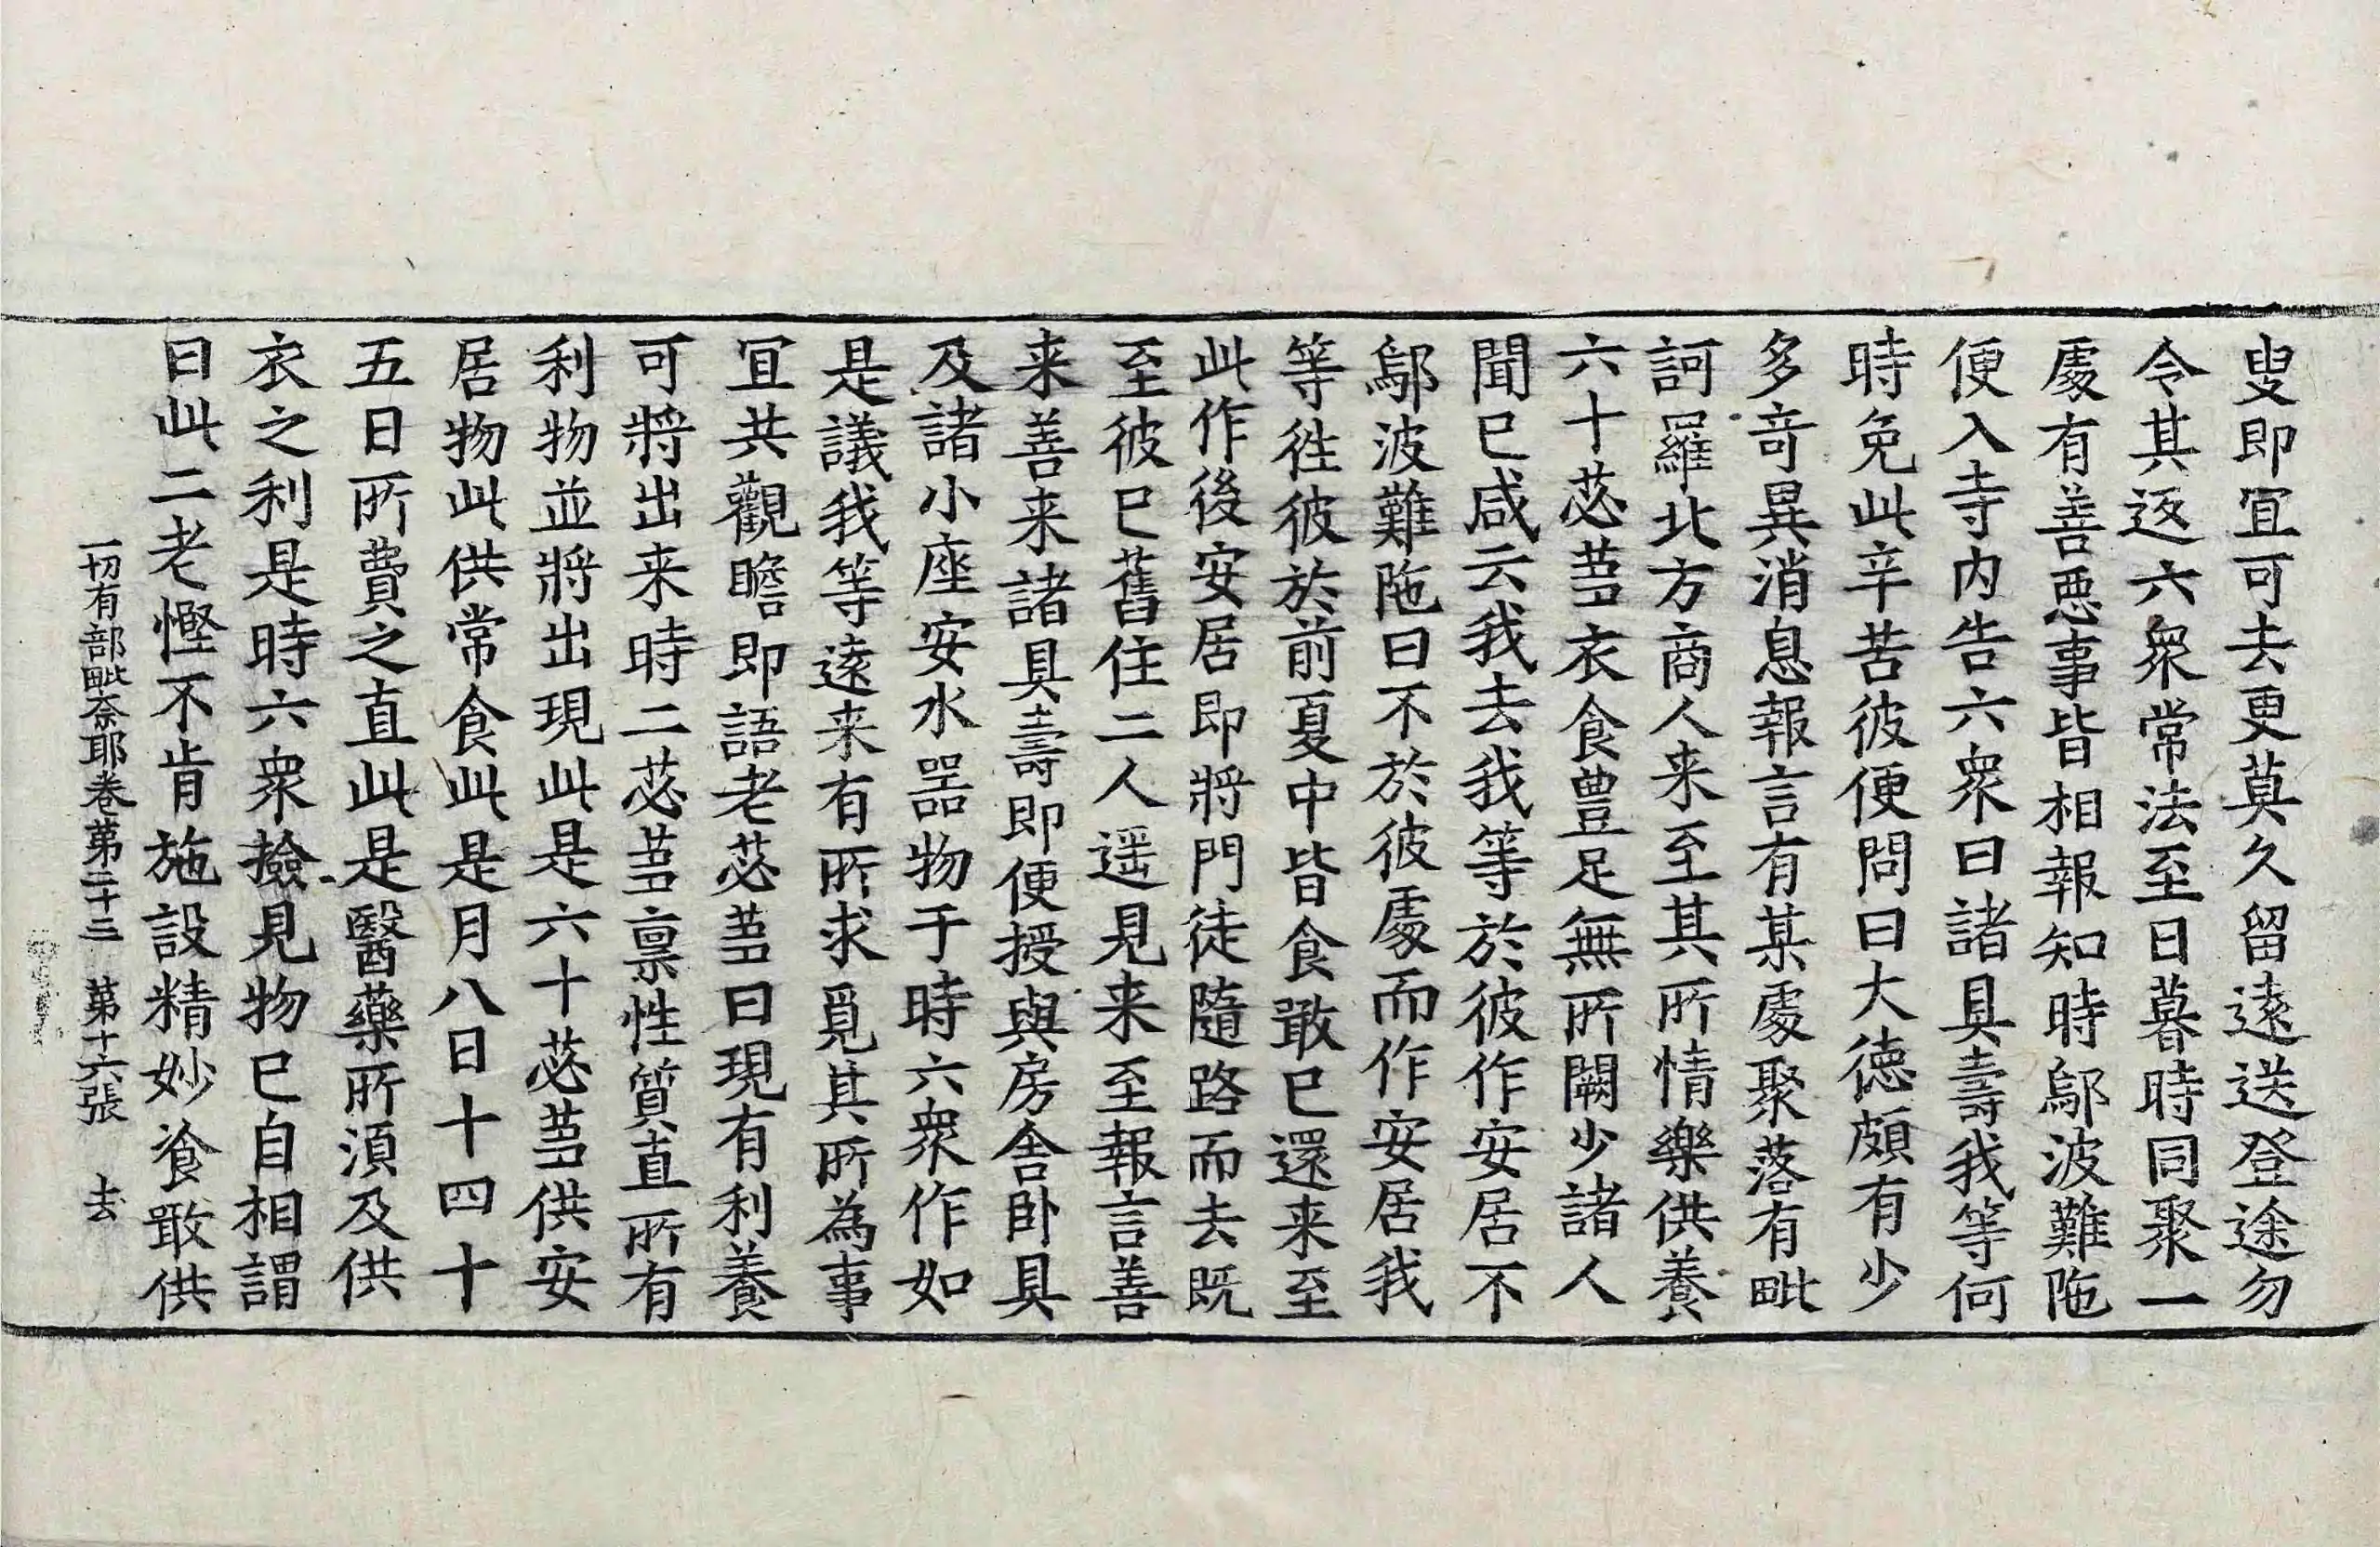 叟即宜可去更莫久留遠送登途勿
令其返六衆常法至日暮時同聚一
處有善惡事皆相報知時鄔波難陁
便入寺内告六衆曰諸具壽我等何
時免此辛苦彼便問曰大德頗有少
多竒異消息報言有某處聚落有毗
訶羅北方商人来至其所情樂供養
六十苾蒭衣食豊足無所闕少諸人
聞已咸云我去我等於彼作安居不
鄔波難陁曰不於彼處而作安居我
等徃彼於前夏中皆食噉已還来至
此作後安居即將門徒隨路而去既
至彼已舊住二人遥見来至報言善
来善来諸具壽即便授與房舍卧具
及諸小座安水器物于時六衆作如
是議我等遠来有所求覓其所為事
宜共觀瞻即語老苾蒭曰現有利養
可將出来時二苾蒭禀性質直所有
利物並將出現此是六十苾蒭供安
居物此供常食此是月八日十四十
五日所費之直此是醫藥所湏及供
衣之利是時六衆撿見物已自相謂
曰此二老慳不肯施設精妙飡噉供
一切有部毗奈耶卷第二十三　第十六張　去